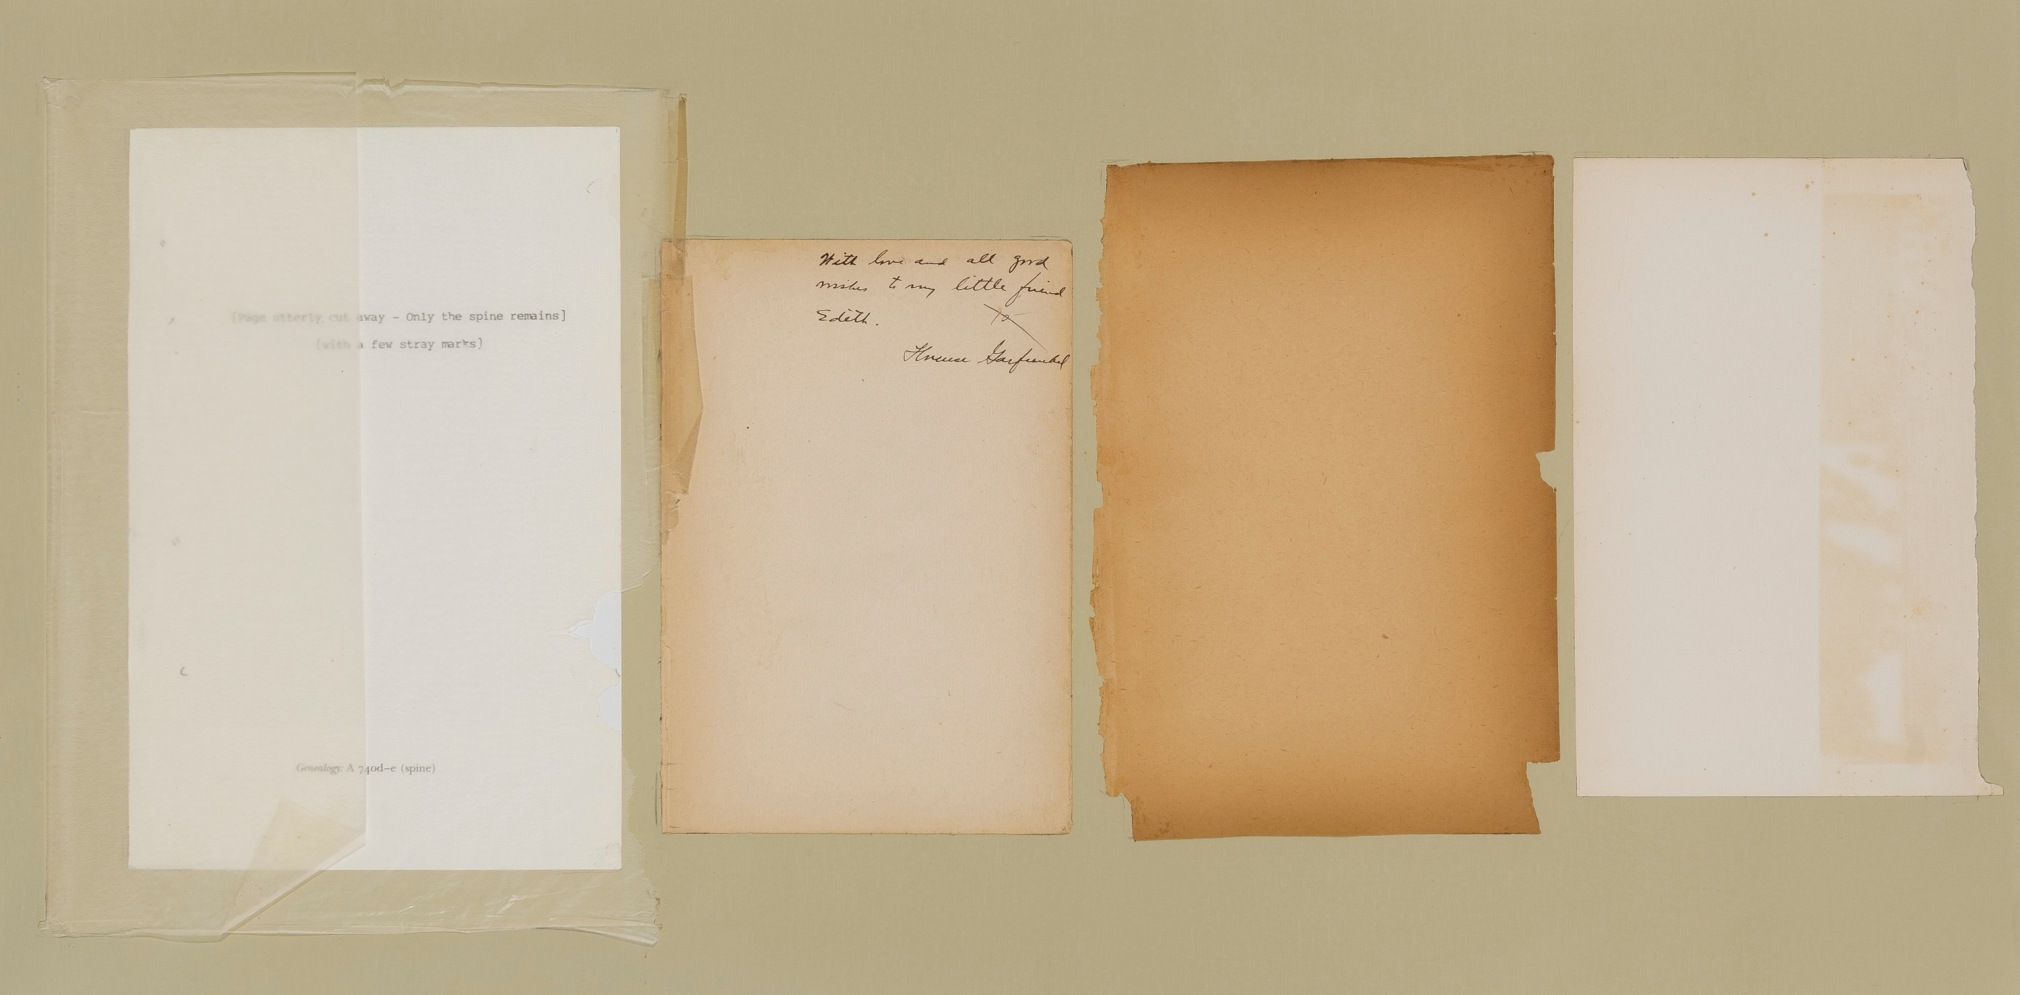 [Page utterly cut away – Only the spine remains]
[with a few stray marks]
Genealogy: A 740d–e (spine)
With love and all good
wishes to my little friend
Edith.